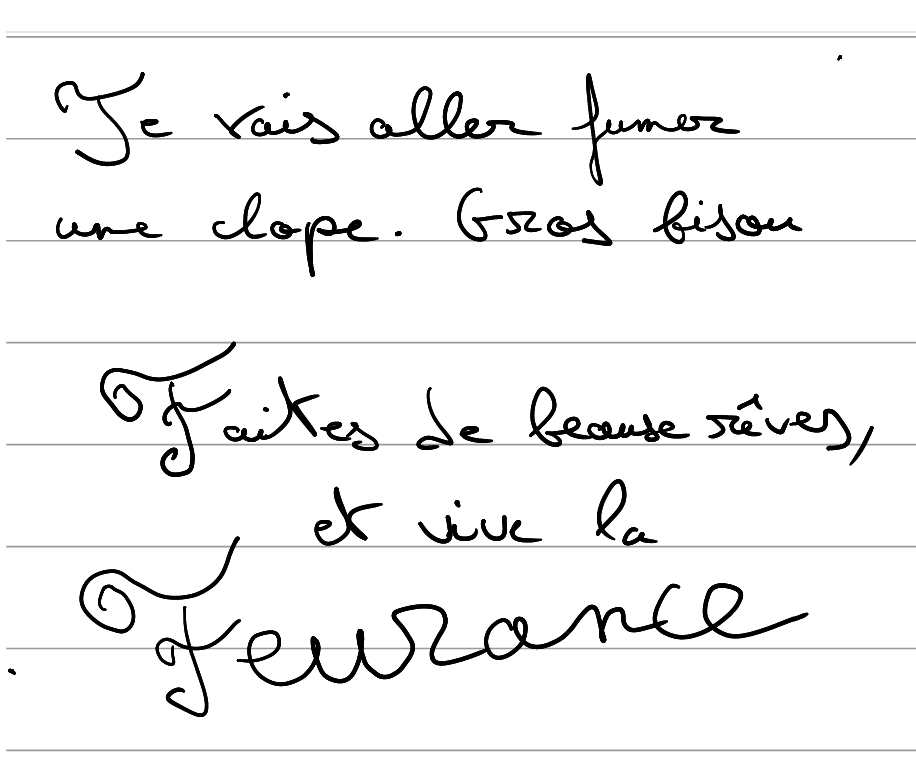 Je vais aller fumer
une clope. Gros bisou
Faites de beause rêves,
et vive la
Feurance